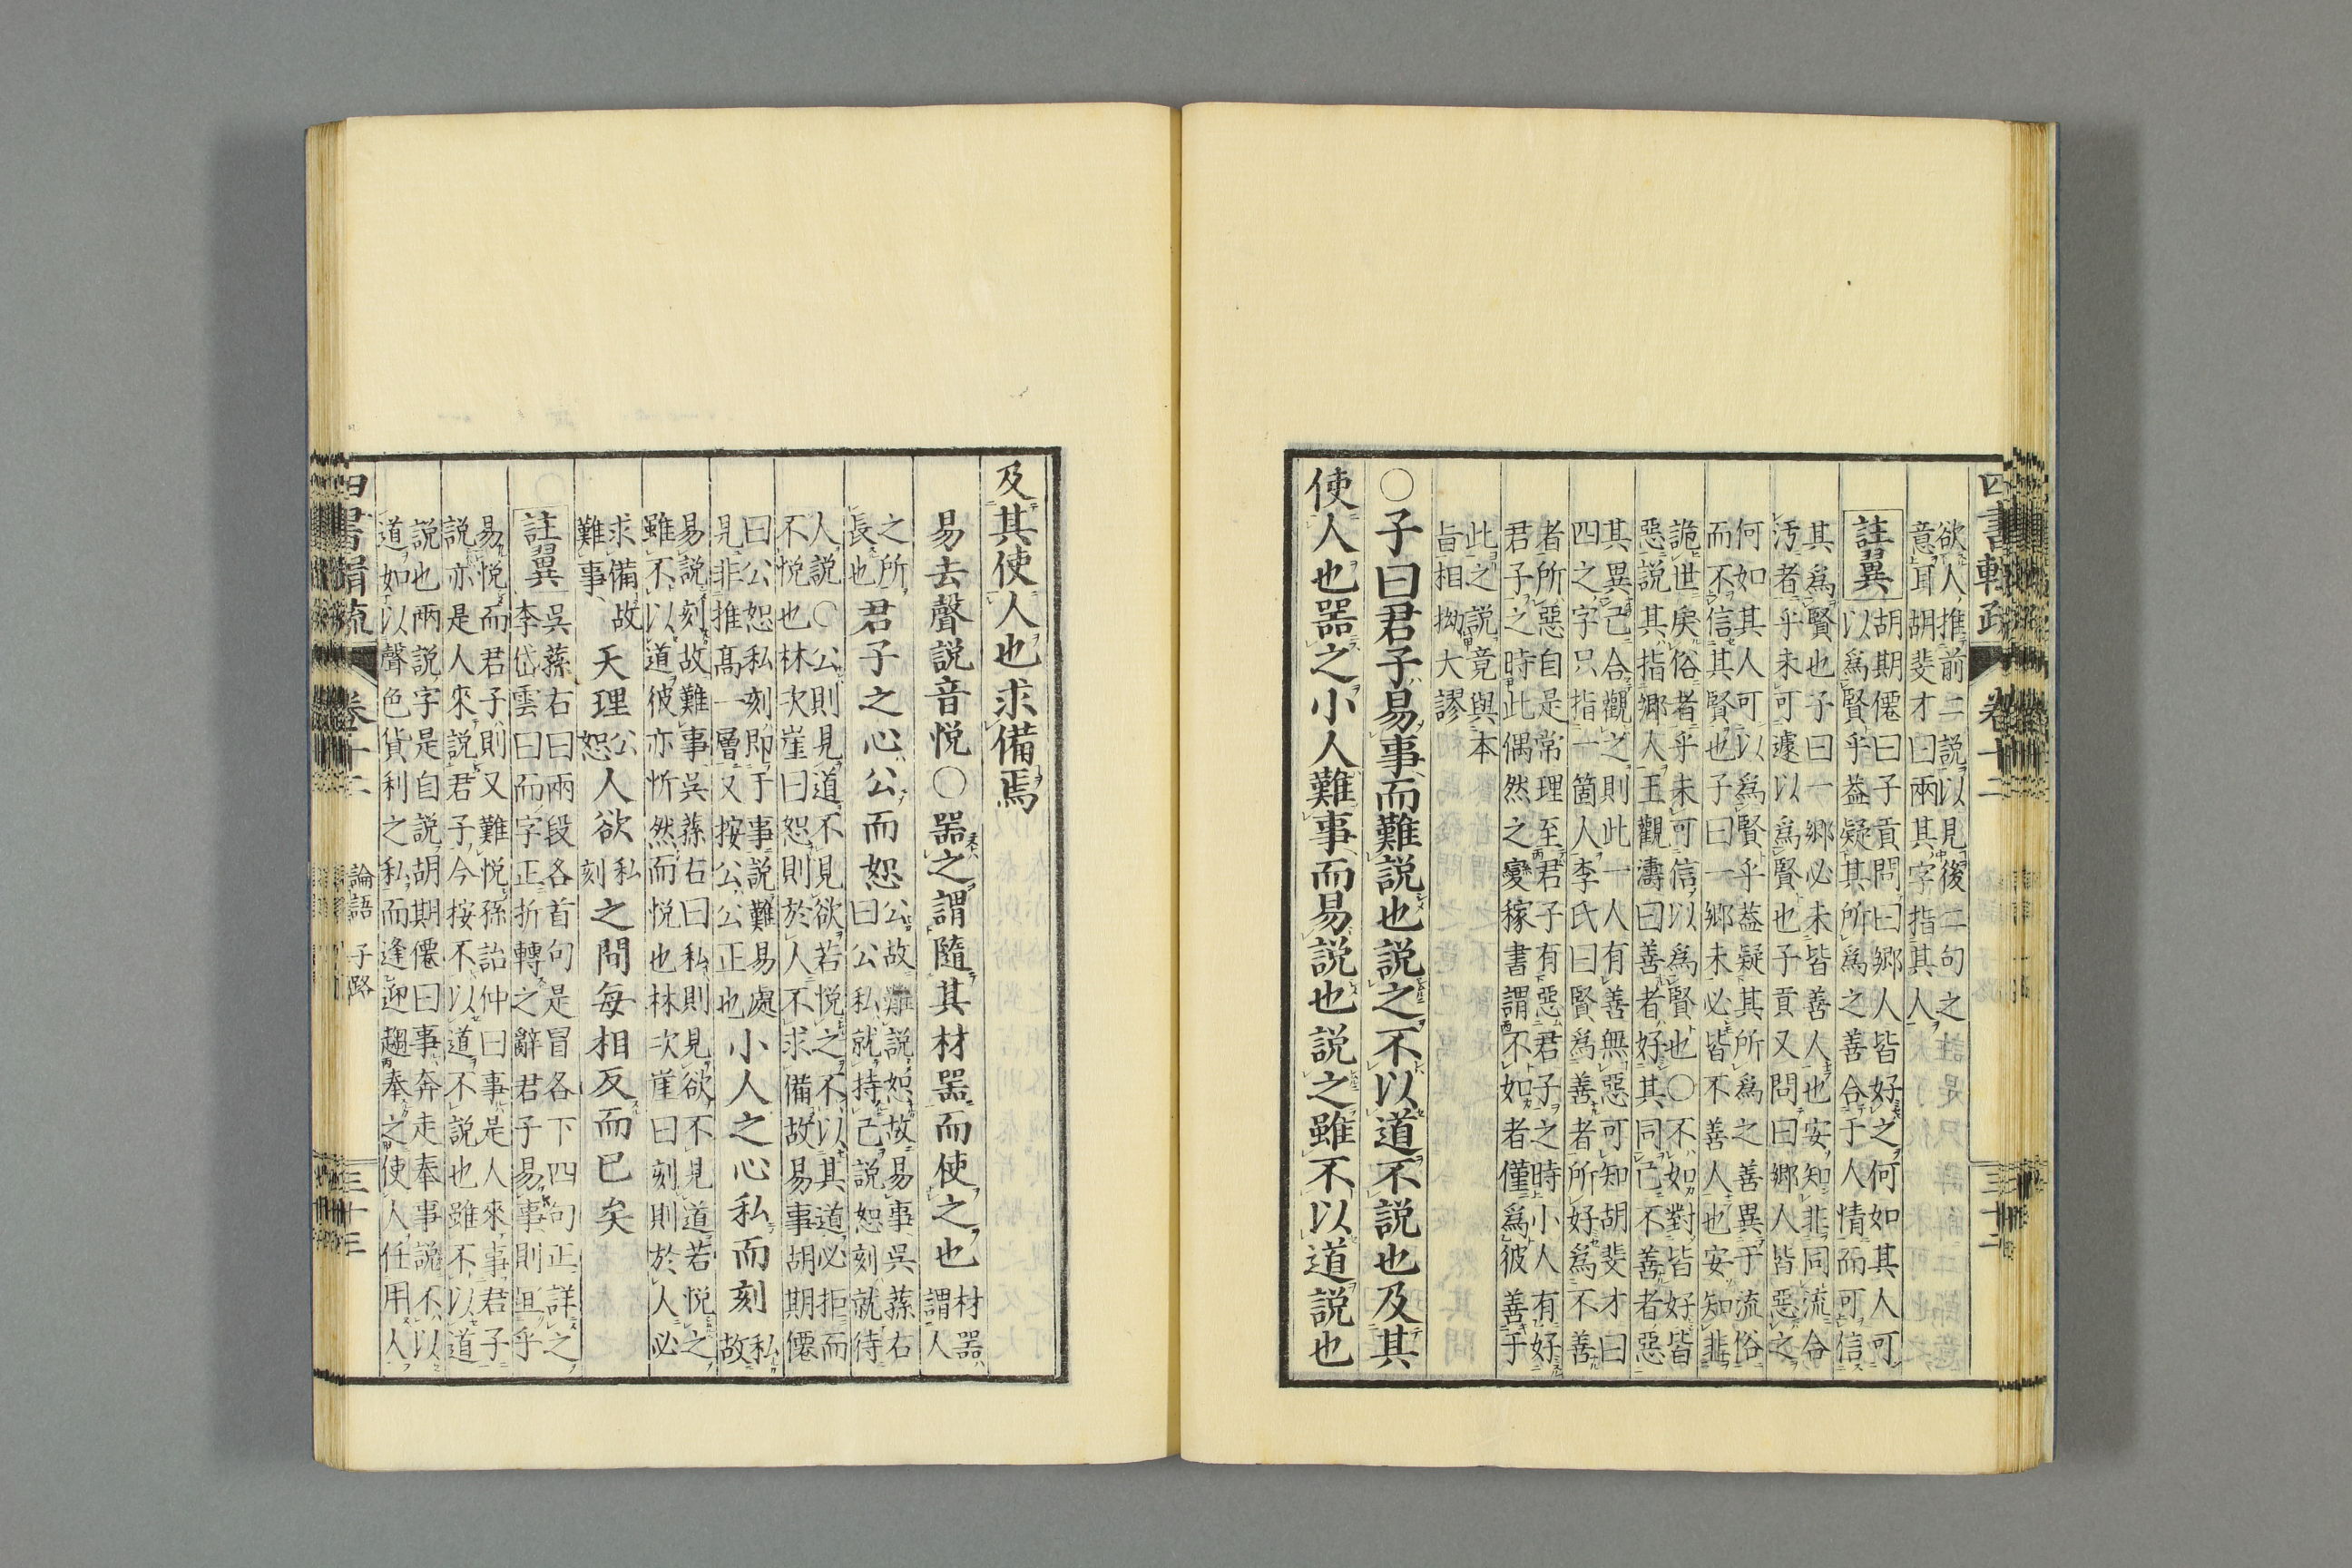 四書輯疏
卷十二
三十二
欲人推前二説以見後二句之
意耳胡斐才曰兩其字指其人
註翼
胡期僊曰子貢問曰鄉人皆好之何如其人可
以為賢乎葢疑其所為之善合于人情而可信
其為賢也子曰一鄉必未皆善人也安知非同流合
汚者乎未可遽以為賢也子貢又問曰鄉人皆惡之
何如其人可以為賢乎葢疑其所為之善異于流俗
而不信其賢也子曰一鄉未必皆不善人也安知非
詭世戾俗者乎未可信以為賢也○不如對皆好皆
惡説其指鄉人王觀濤曰善者好其同己不善者惡
其異己合觀之則此一人有善無惡可知胡斐才曰
四之字只指一箇人李氏曰賢為善者所好為不善
者所惡自是常理至君子有惡君子之時小人有好
君子之時此偶然之變稼書謂不如者僅為彼善于
此之説竟與本
旨相拗大謬
○子曰君子易事而難説也説之不以道不説也及其
使人也器之小人難事而易説也説之雖不以道説也
及其使人也求備焉
易去聲説音悦○器之謂隨其材器而使之也
材器
謂人
之所
長也
君子之心公而恕
公故難説恕故易事呉蓀右
曰公私就持己説恕刻就待
人説○公則見道不見欲若悦之不以其道必拒而
不悦也林次崖曰恕則於人不求備故易事胡期僊
曰公恕私刻即于事説難易處
見非推高一層又按公公正也
小人之心私而刻
私故
易説刻故難事呉蓀右曰私則見欲不見道若悦之
雖不以道彼亦忻然而悦也林次崖曰刻則於人必
求備故
難事
天理
公
恕
人欲
私
刻
之間每相反而已矣
註翼
呉蓀右曰兩段各首句是冒各下四句正詳之
李岱雲曰而字正折轉之辭君子易事則宜乎
易悦而君子則又難悦孫詒仲曰事是人來事君子
説亦是人來説君子今按不以道不説也雖不以道
説也兩説字是自説胡期僊曰事奔走奉事説不以
道如以聲色貨利之私而逢迎趨奉之使人任用人
四書輯疏
卷十二
論語 子路
三十三